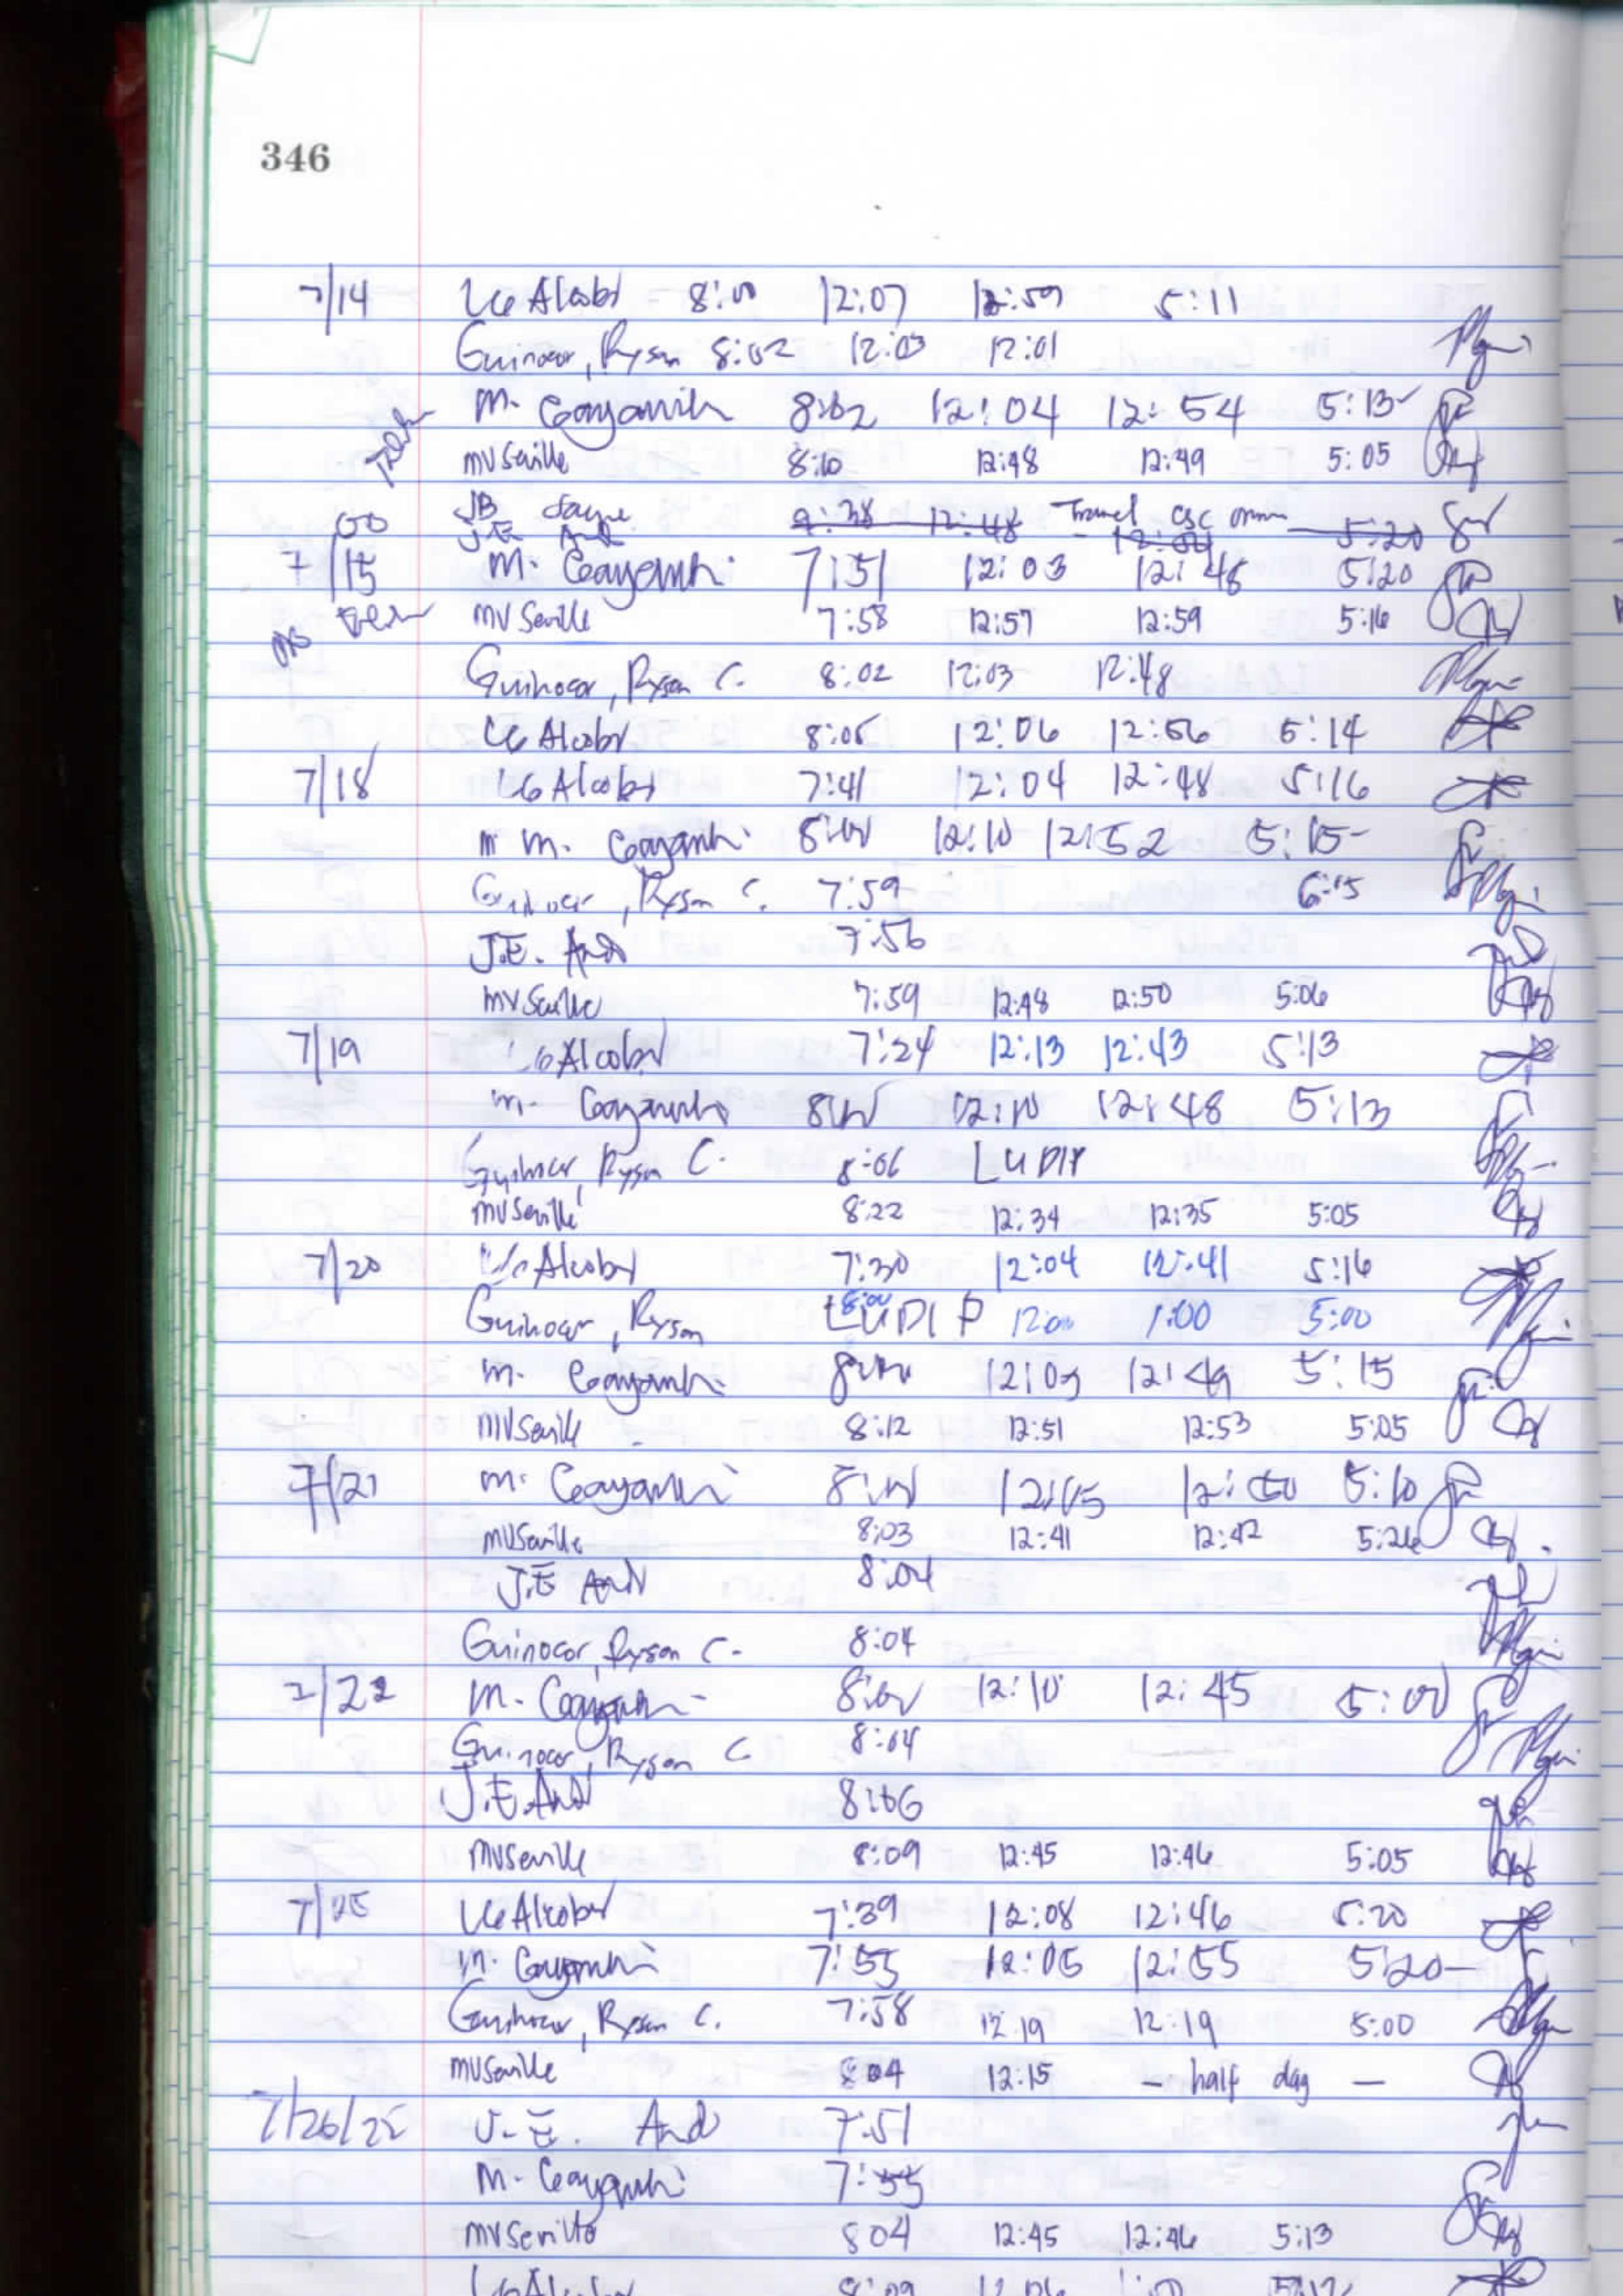 346
7/14 LG Alcober 8:00 12:07 12:59 5:11
Guinocor, Ryson 8:02 12:03 12:01
M. Gayanilo 8:02 12:04 12:54 5:13
MVSeville 8:10 12:48 12:49 5:05
JB 9:38 12:48 Travel CSC 5:20
J.E. And
7/15 M. Gayanilo 7:51 12:03 12:46 5:20
MVSeville 7:58 12:57 12:59 5:16
Guinocor, Ryson C. 8:02 12:03 12:48
LG Alcober 8:05 12:06 12:56 5:14
7/18 LG Alcober 7:41 12:04 12:48 5:16
M. Gayanilo 8:00 12:10 12:52 5:15
Guinocor, Ryson C. 7:59 6:15
J.E. And 7:56
MVSeville 7:59 12:48 12:50 5:06
7/19 LG Alcober 7:24 12:13 12:43 5:13
M. Gayanilo 8:00 12:10 12:48 5:13
Guinocor, Ryson C. 8:06 LUDIP
MVSeville 8:22 12:34 12:35 5:05
7/20 LG Alcober 7:30 12:04 12:41 5:16
Guinocor, Ryson LUDIP 8:00 12:00 1:00 5:00
M. Gayanilo 8:00 12:05 12:49 5:15
MVSeville 8:12 12:51 12:53 5:05
7/21 M. Gayanilo 8:00 12:05 12:50 5:10
MVSeville 8:03 12:41 12:42 5:26
J.E And 8:04
Guinocor, Ryson C. 8:04
7/22 M. Gayanilo 8:00 12:10 12:45 5:00
Guinocor, Ryson C 8:04
J.E. And 8:06
MVSeville 8:09 12:45 12:46 5:05
7/25 LG Alcober 7:39 12:08 12:46 5:20
M. Gayanilo 7:55 12:05 12:55 5:20
Guinocor, Ryson C. 7:58 12:19 12:19 5:00
MVSeville 8:04 12:15 - half day -
7/26/22 J.E. And 7:51
M. Gayanilo 7:55
MVSeville 804 12:45 12:46 5:13
LG Alcober 8:09